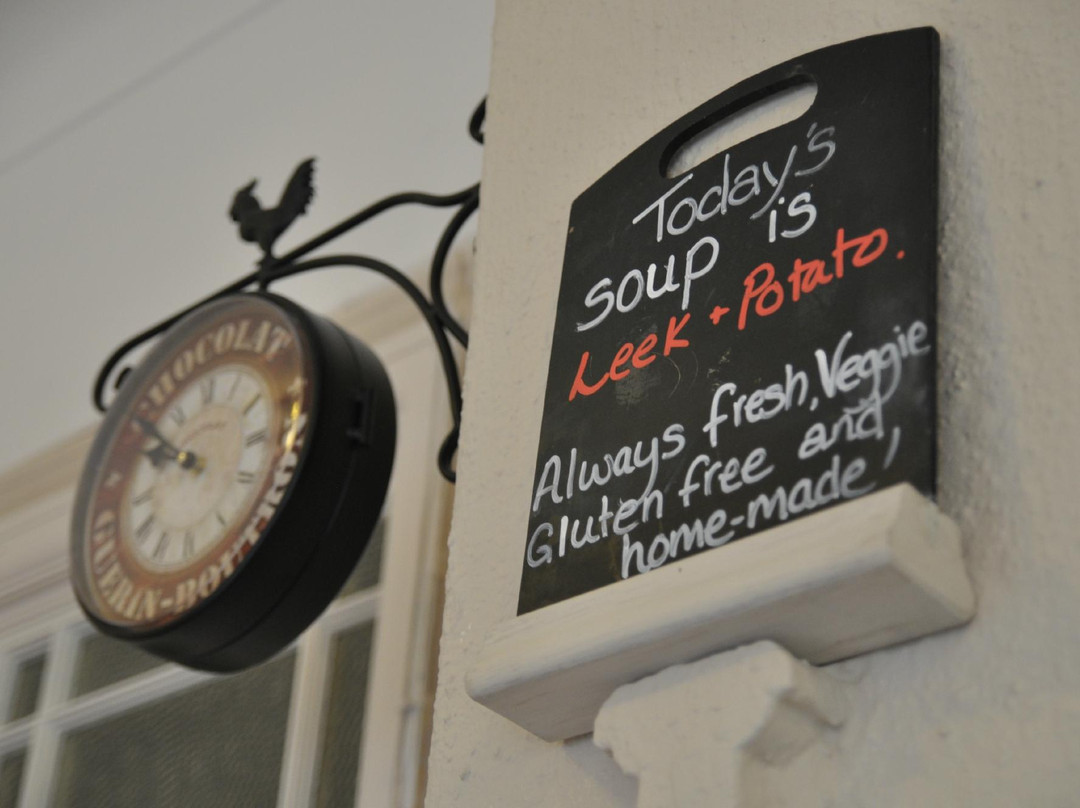 CHOCOLAT
GUERIN-BOUTRON
Today's
soup is
Leek + Potato.
Always fresh, Veggie
Gluten free and,
home-made